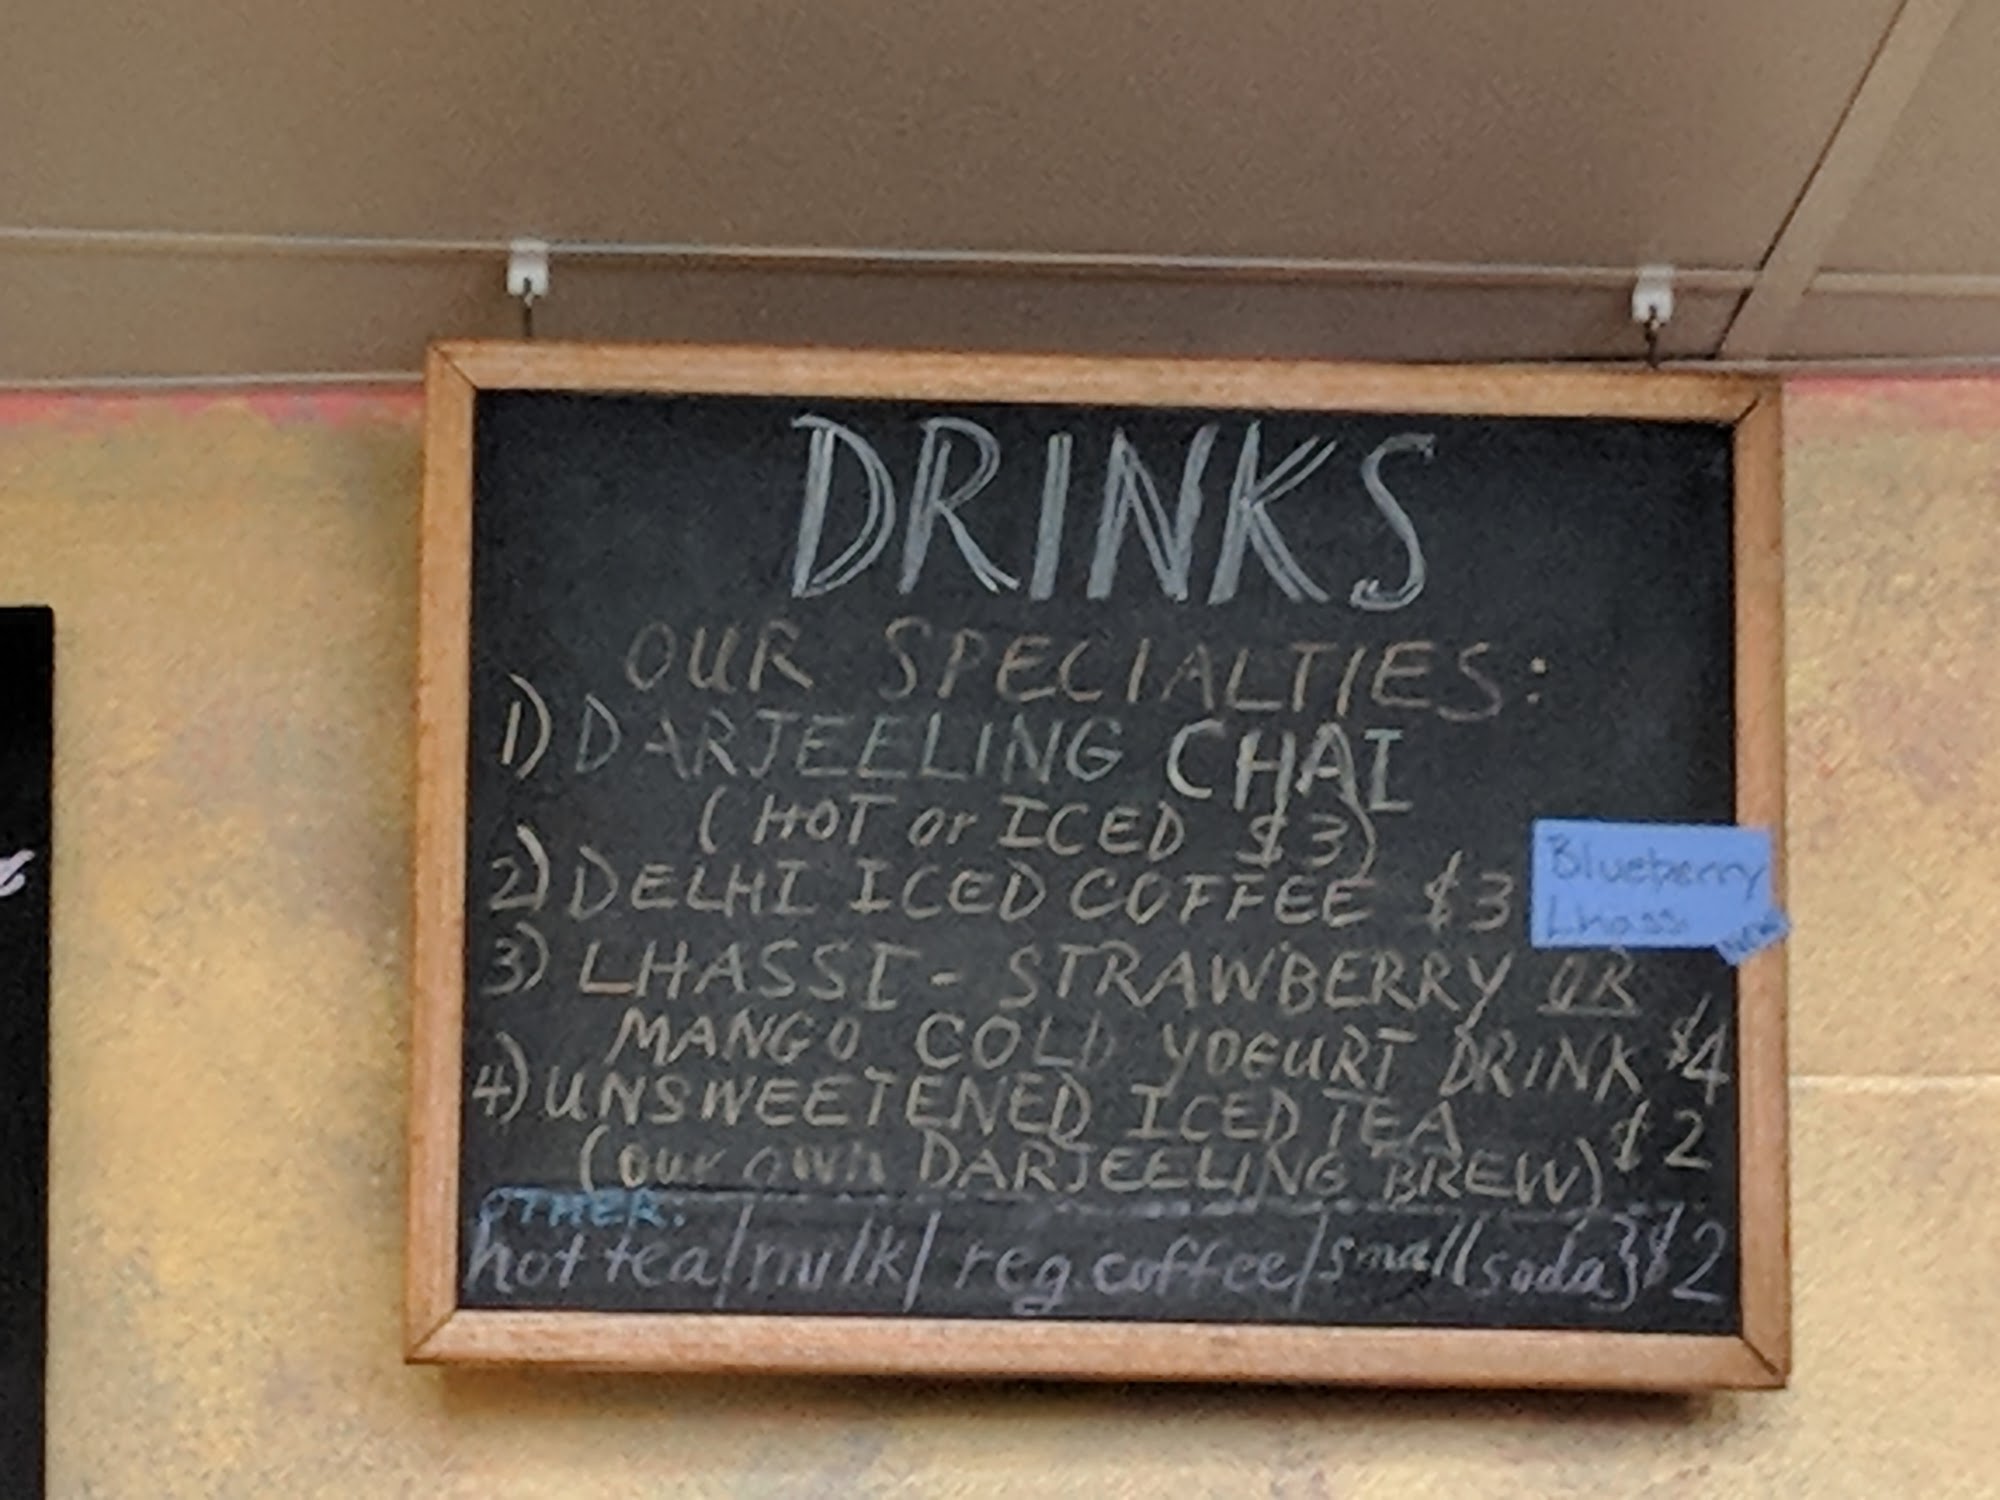 DRINKS
OUR SPECIALTIES:
1) DARJEELING CHAI
(HOT or ICED $3)
2) DELHI ICED COFFEE $3
Blueberry
Lhassi
NEW
3) LHASSI - STRAWBERRY OR
MANGO COLD YOGURT DRINK $4
4) UNSWEETENED ICED TEA $2
(our own DARJEELING BREW)
OTHER:
hot tea/milk/reg. coffee/small soda}$2